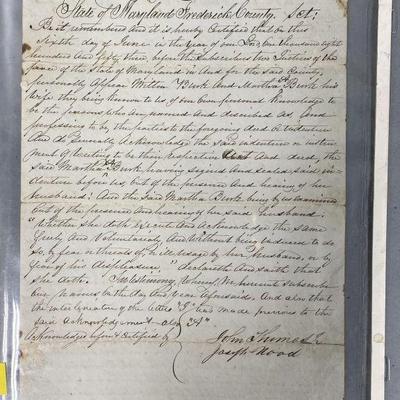 State of Maryland Frederick County, Sct;
Be it remembered and it is hereby Certified that on this
Sixth day of June in the Year of our Lord one thousand eight
hundred and fifty three, before the Subscribers two Justices of the
peace of the State of Maryland in and for the said County,
personally Appear William Burk and Martha A Burk his
Wife they being known to us, of our own personal knowledge to
be the persons who are named and described as, and
professing to be, the parties to the forgoing deed or indenture
And do Severally Acknowledge the said indenture or instru
ment of writing to be their respective act and deed, the
said Martha A Burk having signed and sealed said in
denture before us, out of the presence and hearing of her
husband: And the said Martha A Burk being by us examined
out of the presence and hearing of her said husband,
"Whether she doth execute and Acknowledge the same
freely and Voluntarialy, and without being induced to do
So, by fear or threats of, or ill usage by her husband, or by
fear of his displeasure," declareth and saith that
she doth. In testimony, whereof, We hereunto subscribe
our names on the day and Year Aforesaid. And also that
the interlineation of the letter "A" had made previous to the
said acknowledgement also "A"
Acknowledged before & Certified by
John Thomas
Joseph Wood